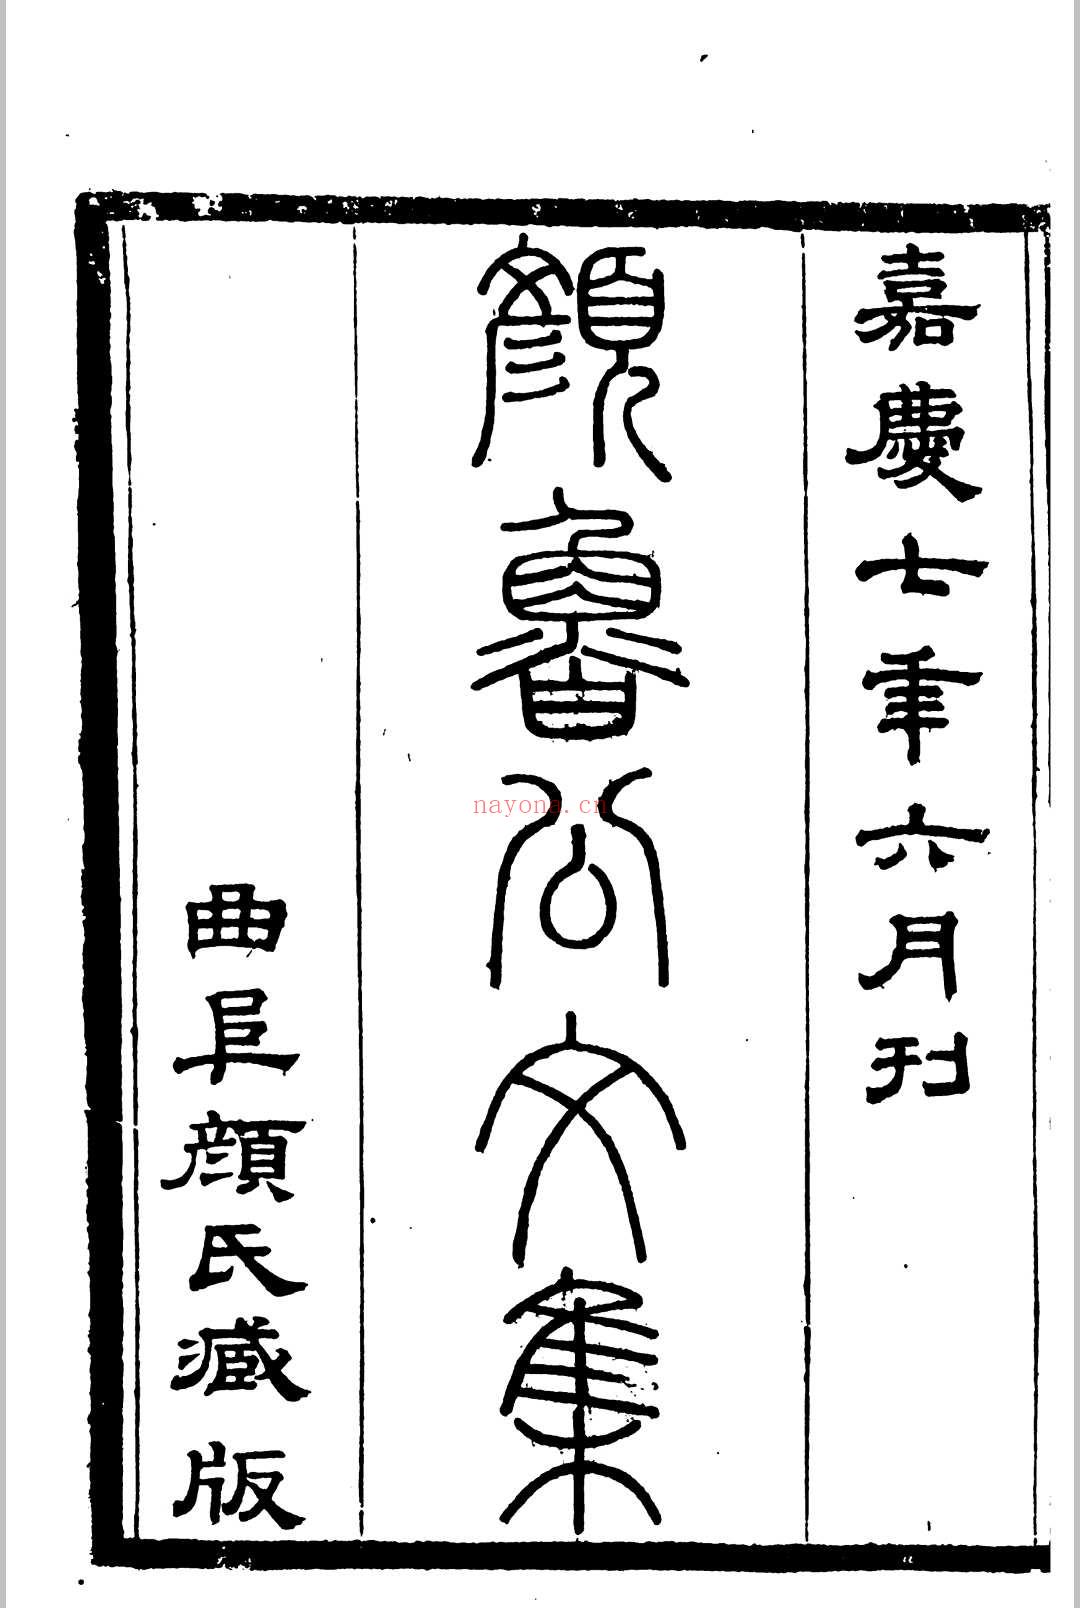 嘉慶七年六月刊
顔魯公文集
曲阜顔氏藏版
nayona.cn